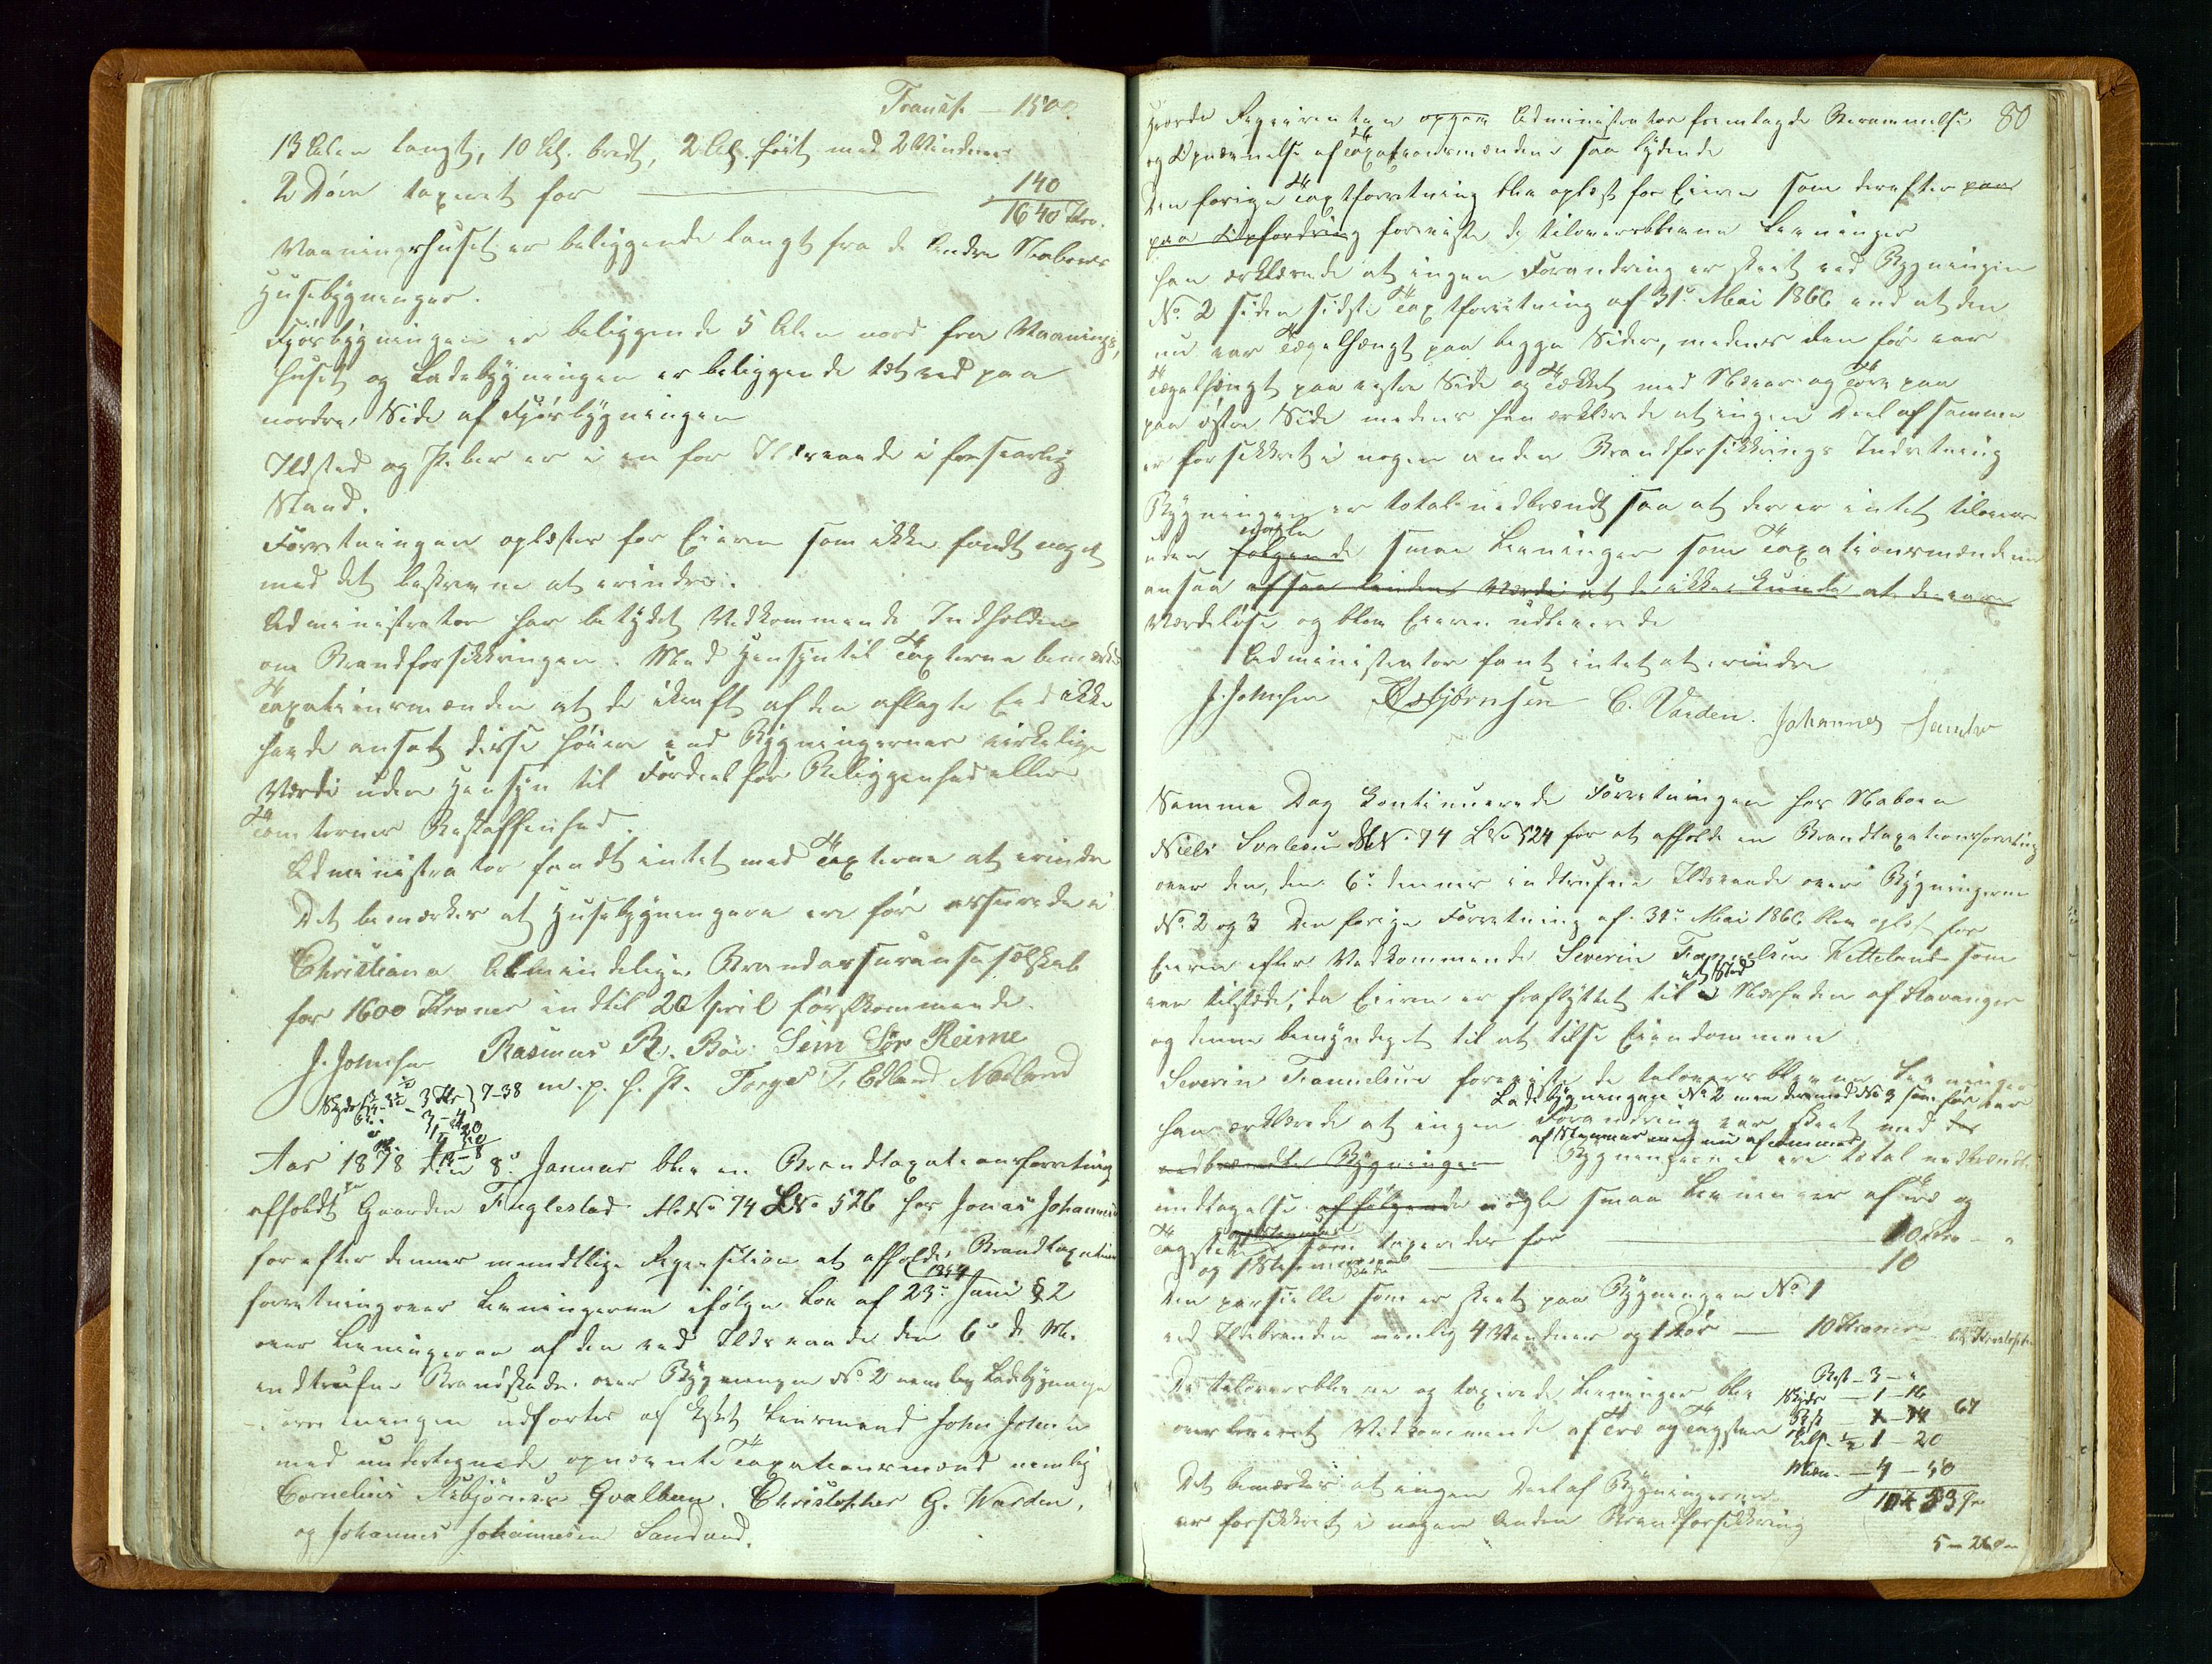 Transp. – 1500
13 Alen langt, 10 Al. bredt, 2 Al. høit med 2 Vinduer
2 Døre taxeret for — 140
1640 Kr.
Vaaningshuset er beliggende langt fra de Andre Naboers
Husebygninger.
Fjøsbygningen er beliggende 5 Alen nord fra Vaanings,
huset og Ladebygningen er beliggende tæt ved paa
nordre Side af Fjøsbygningen
Ildsted og Piber er i en for Ildsvaade i forsvarlig
Stand.
Forretningen oplæstes for Eieren som ikke fandt noget
med det beskrevne at erindre.
Administrator har betydet Vedkommende Indholden
om Brandforsikkringen. Med Hensyn til Taxterne bemærked
Taxationsmænden at de ikraft af den aflagte Eed ikke
havde ansat disse høiere end Bygningernes virkelige
Værdi uden Hensyn til Fordeel for Beliggenhed eller
Tomternes Beskaffenhed.
Administrator fandt intet med Taxterne at erindre
Det bemærkes at Husebygningerne ere før assurede i
Christiania Almindelige Brandassuranseselskab
for 1600 Kroner indtil 20 April førstkommende.
J. Johnsen Rasmus R. Bøe Sem Tør Reime
m. p. h. P. Torger T. Edland Næland
3 Kr 7–38
Aar 1878 den 8de Januar blev en Brandtaxationsforretning
afholdt paa Gaarden Fuglestad M. No 74 LNo 526 hos Jonas Johannesen
for efter dennes mundtlige Reqvisition at afholde Brandtaxations
forretning over Levningerne ifølge Lov af 23de Juni 1844 § 2
over Levningerne af den ved Ildsvaade den 6te d. M.
indtrufne Brandskade over Bygningen No 2 nemlig Ladebygningen
Forretningen udførtes af Lensmand John Johnsen
med undertegnede opnævnte Taxationsmænd nemlig
Cornelius Asbjørnsen Qvalbein, Christopher G. Varden,
og Johannes Johannesen Sandvd.
80
hvorda Reqvirenten opgen Administrator fremlagde Berammelse
og Opnævnelse af Taxationsmændene saa lydende
Den forige Taxtforretning blev oplæst for Eieren som derefter paa
paa Opfordring foreviste de tiloversblevne Levninger
han erklærede at ingen Forandring er skeet ved Bygningen
No. 2 siden sidste Taxtforretning af 31te Mai 1866 end at den
nu var Tægelhængt paa begge Sider, medens den før var
Tægelhængt paa vestre Side og Tækket med Næver og Torv paa
paa østre Side medens han erklærede at ingen Deel af samme
er forsikkret i nogen anden Brandforsikkrings Indretning
Bygningen er total nedbrændt saa at der er intet tilovers
uden følgende nogle smaa Levninger som Taxationsmændene
ansaa af saa liden Værdi at de ikke kunde at de vare
Værdeløse og blev Eieren udleverede
Administrator fant intet at erindre
J. Johnsen Asbjørnsen C. Varden. Johannes Sandve
Samme Dag Continuerede Forretningen hos Naboen
Niels Svalesen MNo. 74 LNo 524 for at afholde en Brandtaxationsforretning
over den, den 6te dennes indtrufne Ildsvaade over Bygningerne
No. 2 og 3 Den forige Forretning af 31te Mai 1866 blev oplæst for
Eieren efter Vedkommende Severin Tønnesen Hetland som
var tilstede, da Eieren er fraflyttet til et Sted i Nærheden af Stavanger
og denne bemyndiget til at tilse Eiendommen
Severin Tønnesen foreviste de tiloversblevne Levninger
Ladebygningen No 2 men derimod No 3 som før var
han erklærede at ingen Forandring var skeet med de
af Stenmuur men nu af
nedbrændte Bygninger Bygningerne ere total nedbrændt
undtagelse af følgende nogle smaa Levninger af Træ og
Tagsten som taxeredes for — 10 Kro – „
og 1 Steenmuur — 10
Den partielle som er skeet paa Bygningen No 1
ved Ildebranden nemlig 4 Vinduer og 1 Dør — 10 Kroner
De tiloversblevne og taxerede Levninger blev
overleveret Vedkommende af Træ og Tagsten
Det bemærkes at ingen Deel af Bygningerne
er forsikkret i nogen Anden Brandforsikkring
Rest – 3 – „
Skyds – 1 – 16
67
1 – 20
4 – 50
5 – 26